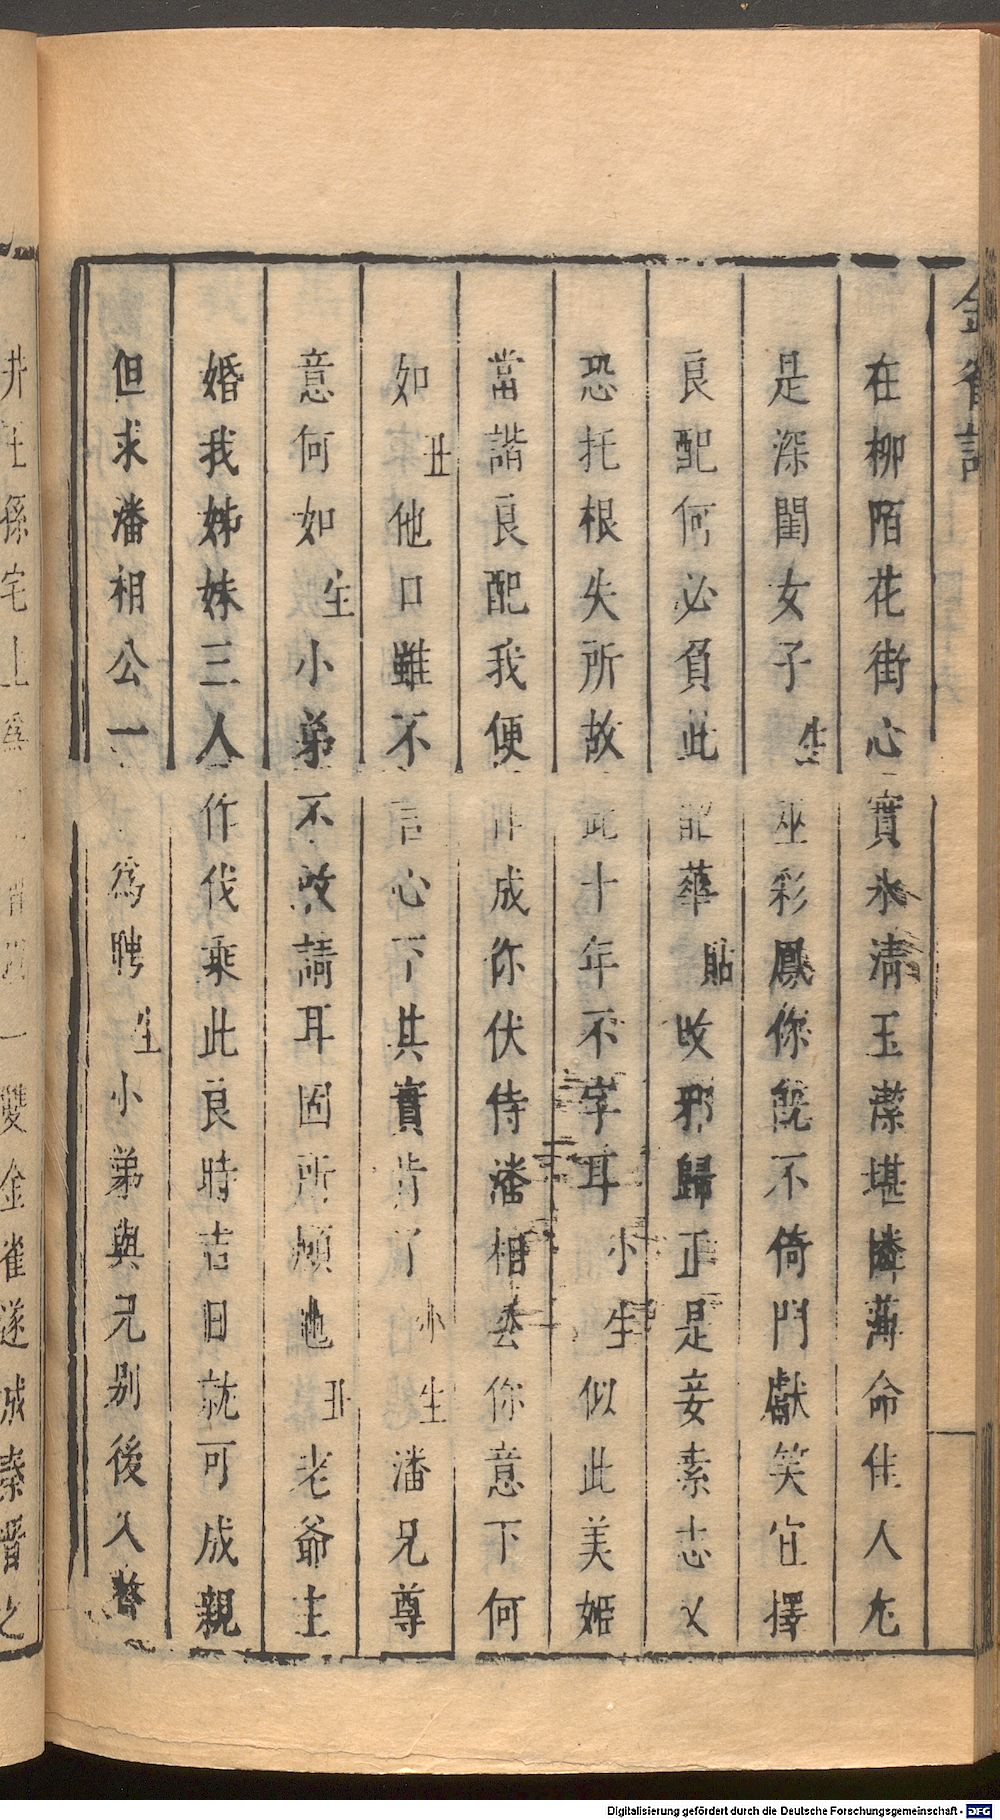 金雀記
在柳陌花街心實氷清玉潔堪憐薄命佳人尤
是深閨女子生巫彩鳳你旣不倚門獻笑宜擇
良配何必負此韶華貼改邪歸正是妾素志又
恐托根失所故此十年不字耳小生似此美姬
當諧良配我便作成你伏侍潘相公你意下何
如丑他口雖不言心下其實肯了小生潘兄尊
意何如生小弟不敢請耳固所願也丑老爺主
婚我姊妹三人作伐乘此良時吉日就可成親
但求潘相公一爲聘生小弟與兄別後入贅
井王孫宅上爲一雙金雀遂成秦晉之
Digitalisierung gefördert durch die Deutsche Forschungsgemeinschaft - DFG